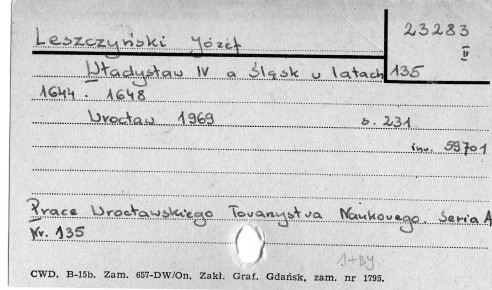 23283
Leszczyński Józef
II
Władysław IV a Śląsk w latach 135
1644 - 1648
Wrocław 1969 s. 231
inw. 59701
Prace Wrocławskiego Towarzystwa Naukowego. Seria A
Nr. 135
1+BJ.
CWD. B-15b. Zam. 657-DW/On. Zakł. Graf. Gdańsk, zam. nr 1795.